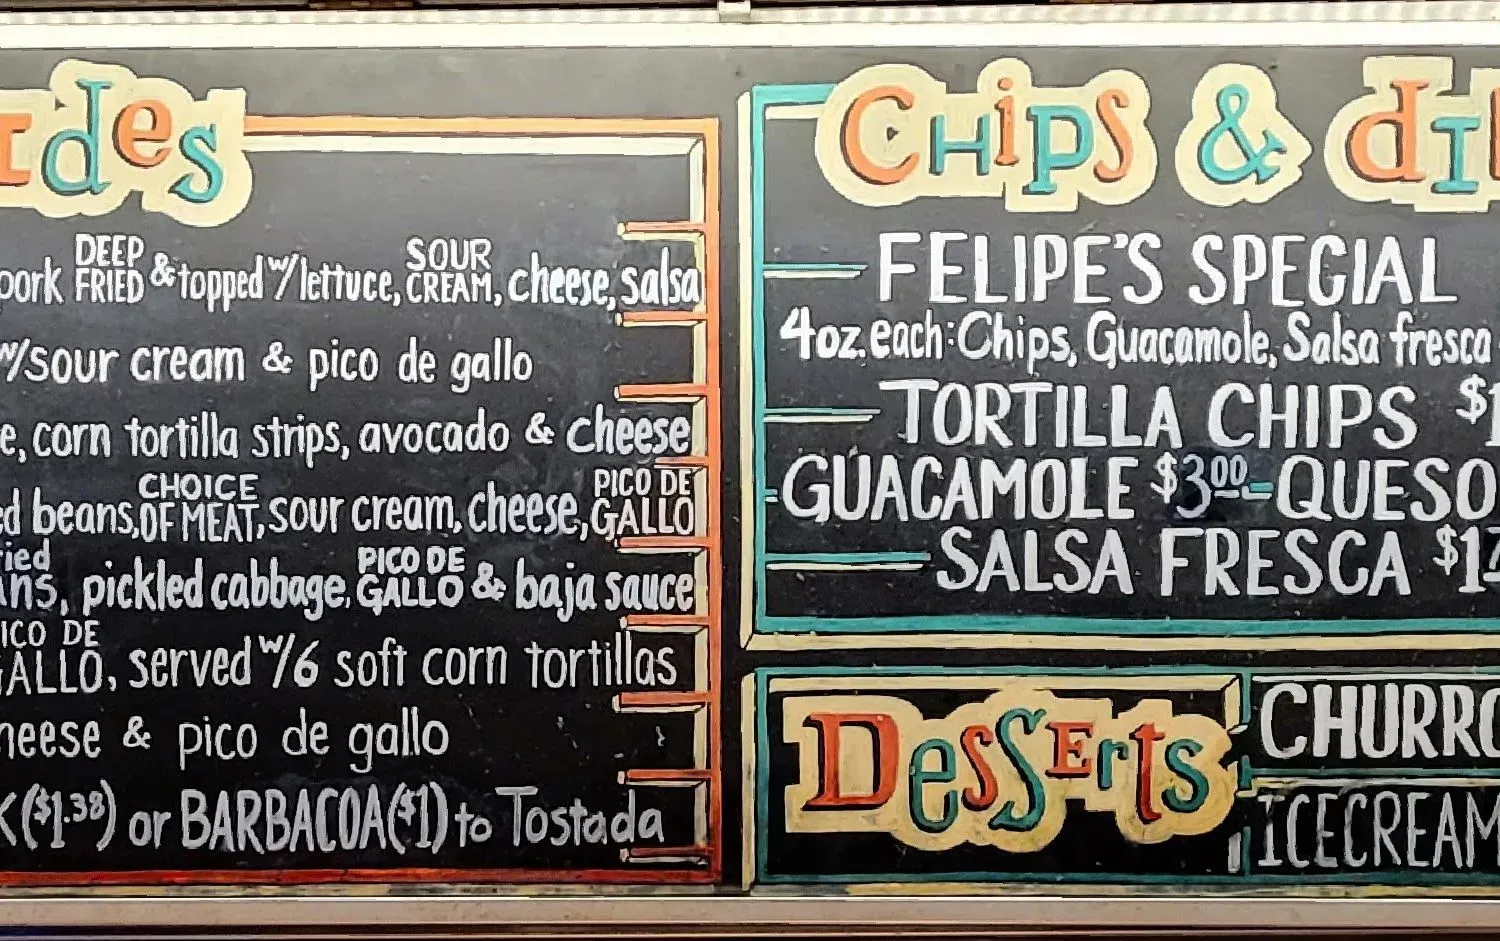 des
pork DEEP FRIED & topped w/ lettuce, SOUR CREAM, cheese, salsa
w/sour cream & pico de gallo
corn tortilla strips, avocado & cheese
beans, CHOICE OF MEAT, sour cream, cheese, PICO DE GALLO
pickled cabbage, PICO DE GALLO & baja sauce
served w/6 soft corn tortillas
& pico de gallo
($1.38) or BARBACOA($1) to Tostada
Chips &
FELIPE'S SPECIAL
4oz. each: Chips, Guacamole, Salsa fresca
TORTILLA CHIPS
GUACAMOLE $3.00 - QUESO
SALSA FRESCA
Desserts
CHURRO
ICECREAM